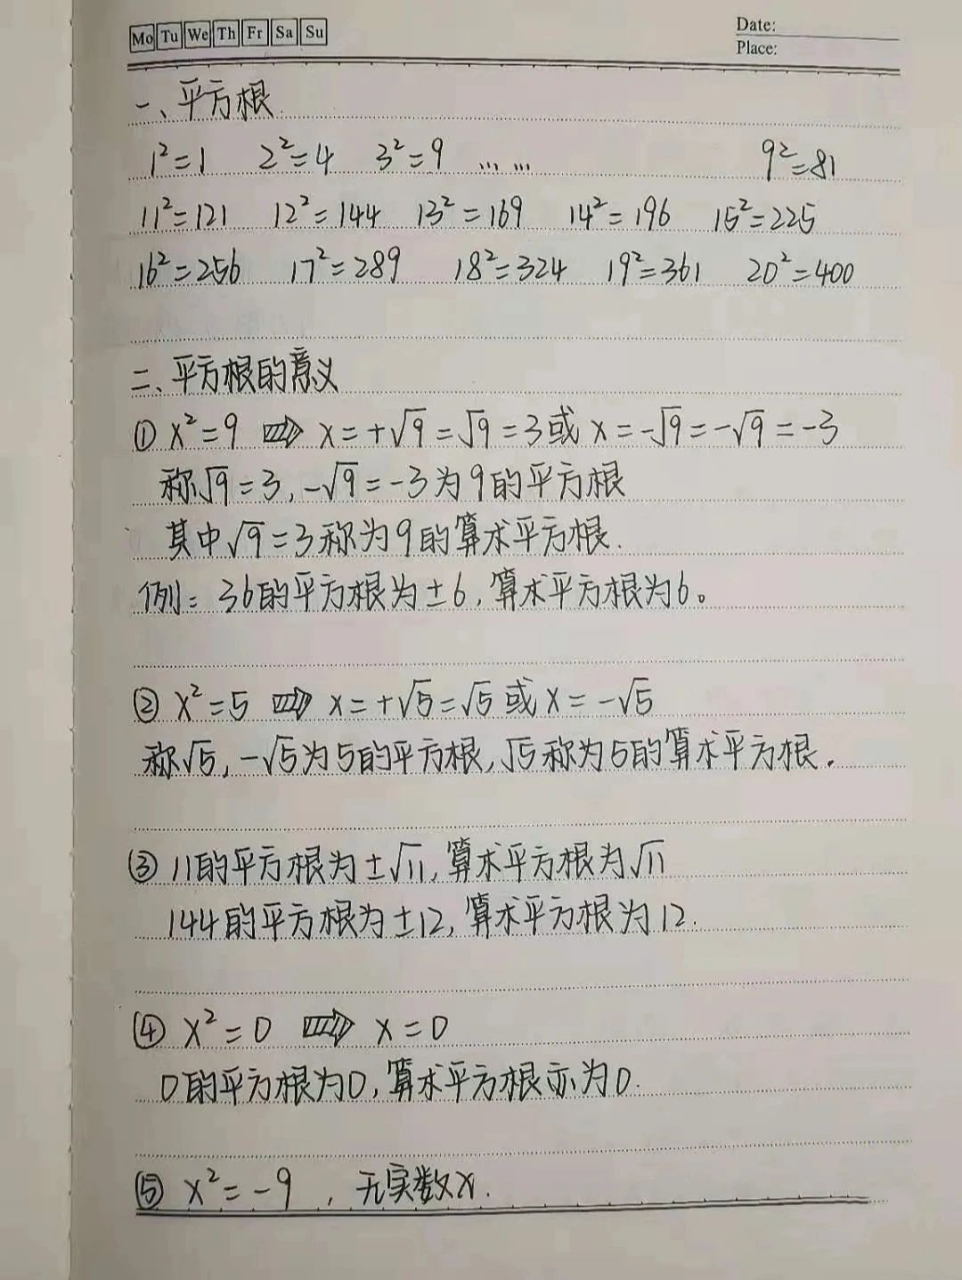 Mo Tu We Th Fr Sa Su
Date:
Place:
一、平方根
1²=1 2²=4 3²=9 …… 9²=81
11²=121 12²=144 13²=169 14²=196 15²=225
16²=256 17²=289 18²=324 19²=361 20²=400
二、平方根的意义
① x²=9 ⇒ x=+√9=√9=3或x=-√9=-√9=-3
称√9=3,-√9=-3为9的平方根
其中√9=3称为9的算术平方根.
例:36的平方根为±6,算术平方根为6。
② x²=5 ⇒ x=+√5=√5或x=-√5
称√5,-√5为5的平方根,√5称为5的算术平方根.
③ 11的平方根为±√11,算术平方根为√11
144的平方根为±12,算术平方根为12.
④ x²=0 ⇒ x=0
0的平方根为0,算术平方根亦为0.
⑤ x²=-9 ,无实数x.